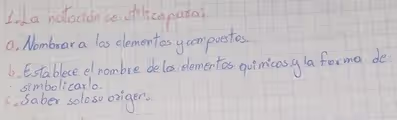 1. La notación se utiliza para:
a. Nombrar a los elementos y compuestos.
b. Establece el nombre de los elementos químicos y la forma de
simbolizarlo.
c. Saber solo su origen.